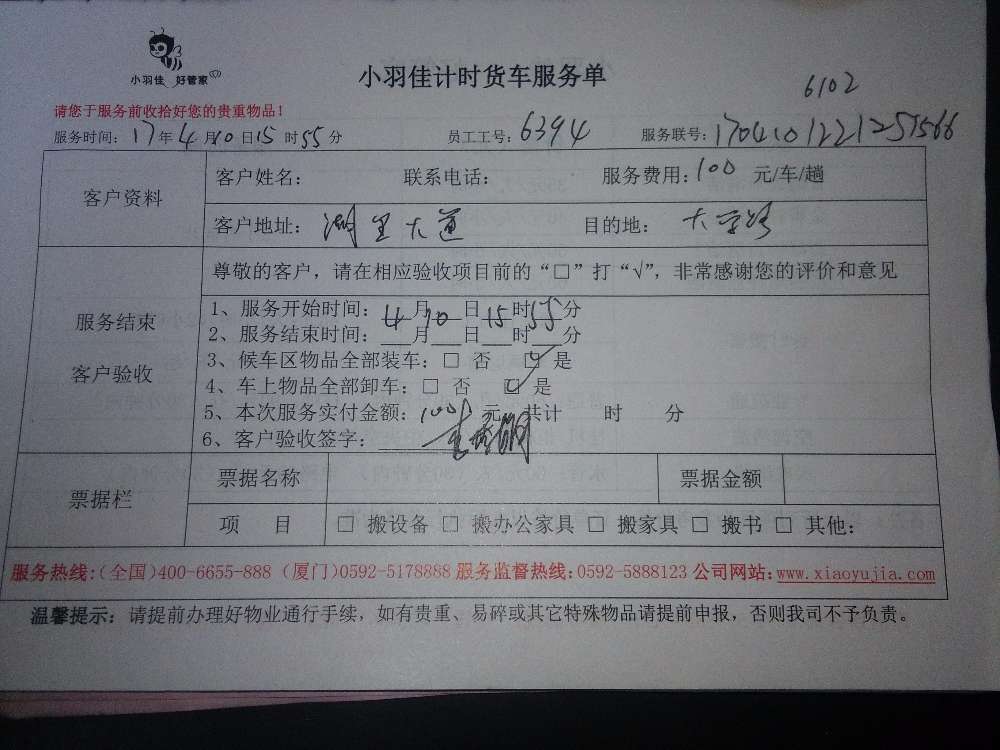 小羽佳 好管家
小羽佳计时货车服务单
6102
请您于服务前收拾好您的贵重物品！
服务时间：17年4月10日15时55分 员工工号：6394 服务联号：
客户资料
客户姓名： 联系电话： 服务费用：100 元/车/趟
客户地址：湖里大道 目的地：大学路
服务结束
客户验收
尊敬的客户，请在相应验收项目前的“□”打“√”，非常感谢您的评价和意见
1、服务开始时间：4月10日15时55分
2、服务结束时间：___月___日___时___分
3、候车区物品全部装车：□ 否 ☑ 是
4、车上物品全部卸车：□ 否 ☑ 是
5、本次服务实付金额：100 元 共计 时 分
6、客户验收签字：
票据栏
票据名称 票据金额
项 目 □ 搬设备 □ 搬办公家具 □ 搬家具 □ 搬书 □ 其他：
服务热线：(全国)400-6655-888 (厦门)0592-5178888 服务监督热线：0592-5888123 公司网站：www.xiaoyujia.com
温馨提示：请提前办理好物业通行手续，如有贵重、易碎或其它特殊物品请提前申报，否则我司不予负责。